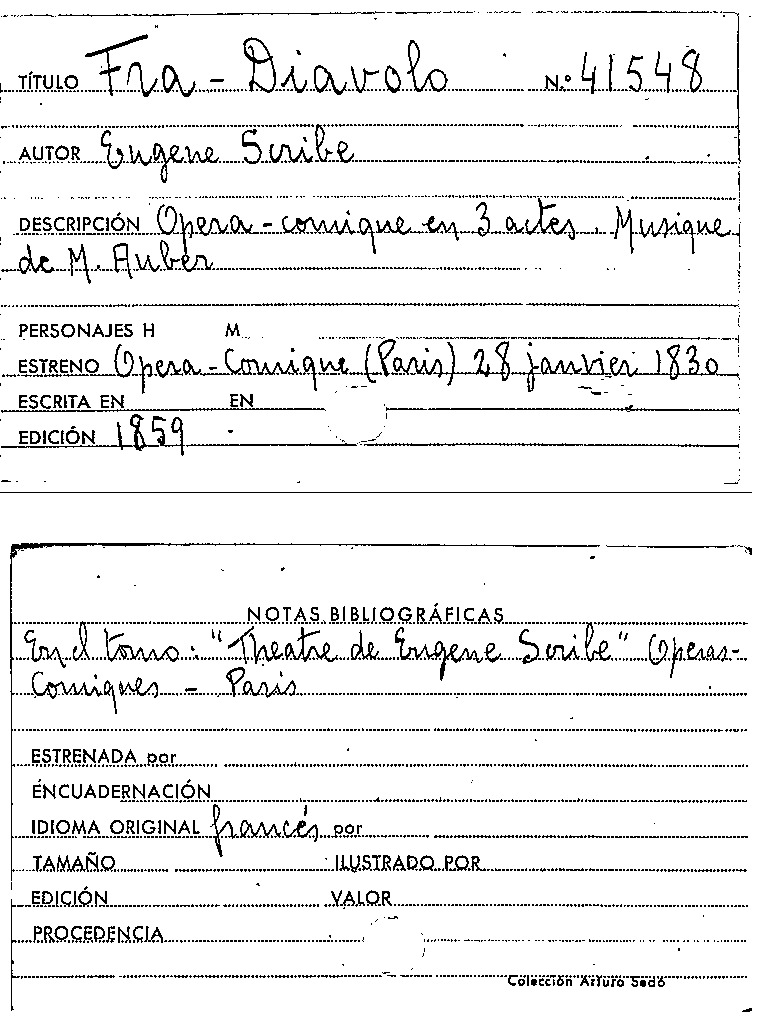 TÍTULO Fra - Diavolo N.º 41548
AUTOR Eugene Scribe
DESCRIPCIÓN Opera - comique en 3 actes. Musique
de M. Auber
PERSONAJES H M
ESTRENO Opera - Comique (Paris) 28 janvier 1830
ESCRITA EN EN
EDICIÓN 1859
NOTAS BIBLIOGRÁFICAS
En el tomo: "Theatre de Eugene Scribe" Operas-
Comiques - Paris
ESTRENADA por
ENCUADERNACIÓN
IDIOMA ORIGINAL francés por
TAMAÑO ILUSTRADO POR
EDICIÓN VALOR
PROCEDENCIA
Colección Arturo Sedó